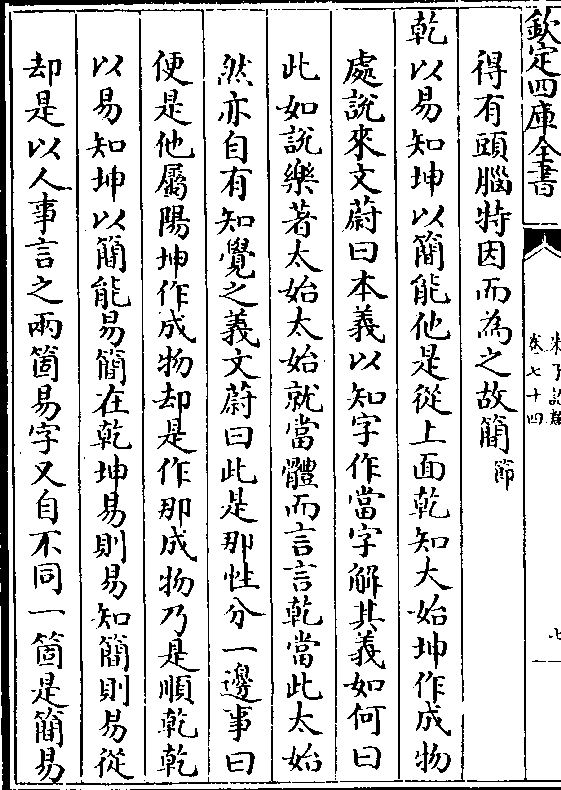 欽定四庫全書
朱子語類
卷七十四
七
得有頭腦特因而為之故簡節
乾以易知坤以簡能他是從上面乾知大始坤作成物
處說來文蔚曰本義以知字作當字解其義如何曰
此如說樂著太始太始就當體而言言乾當此太始
然亦自有知覺之義文蔚曰此是那性分一邊事曰
便是他屬陽坤作成物却是作那成物乃是順乾乾
以易知坤以簡能易簡在乾坤易則易知簡則易從
却是以人事言之兩箇易字又自不同一箇是簡易